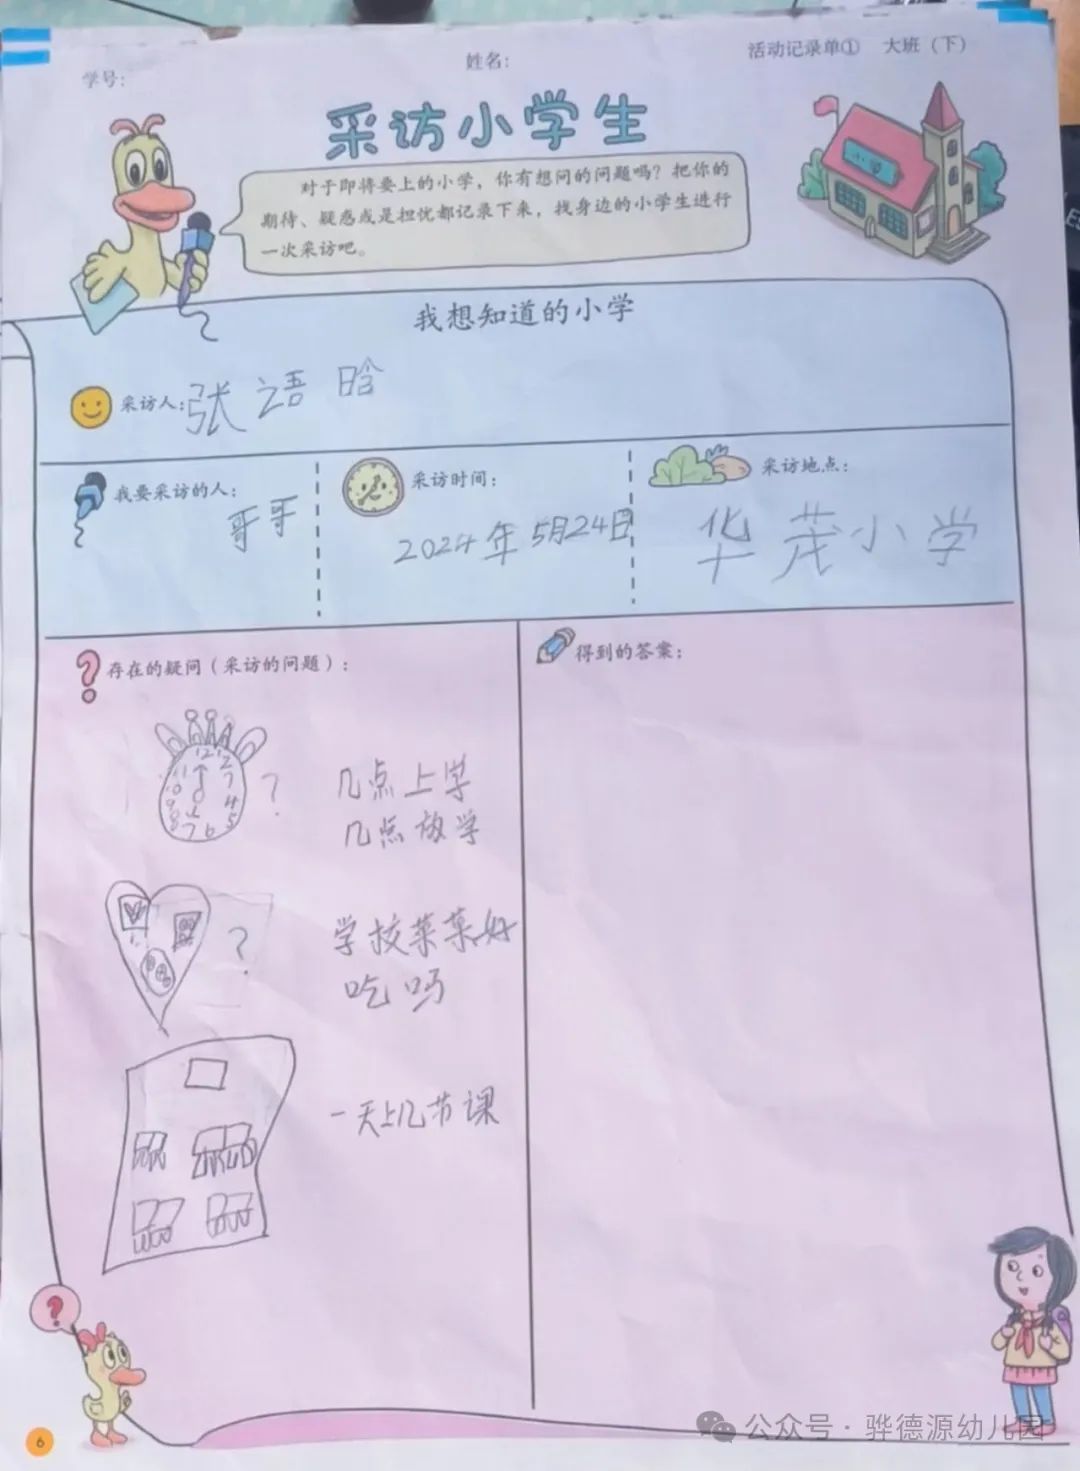 学号:
姓名:
活动记录单① 大班（下）
采访小学生
小学
对于即将要上的小学，你有想问的问题吗？把你的
期待、疑惑或是担忧都记录下来，找身边的小学生进行
一次采访吧。
我想知道的小学
采访人:张语晗
我要采访的人:
哥哥
采访时间:
2024年5月24日
采访地点:
华茂小学
?存在的疑问（采访的问题）:
得到的答案:
?
几点上学
几点放学
?
学校菜菜好
吃吗
一天上几节课
?
6
公众号·骅德源幼儿园